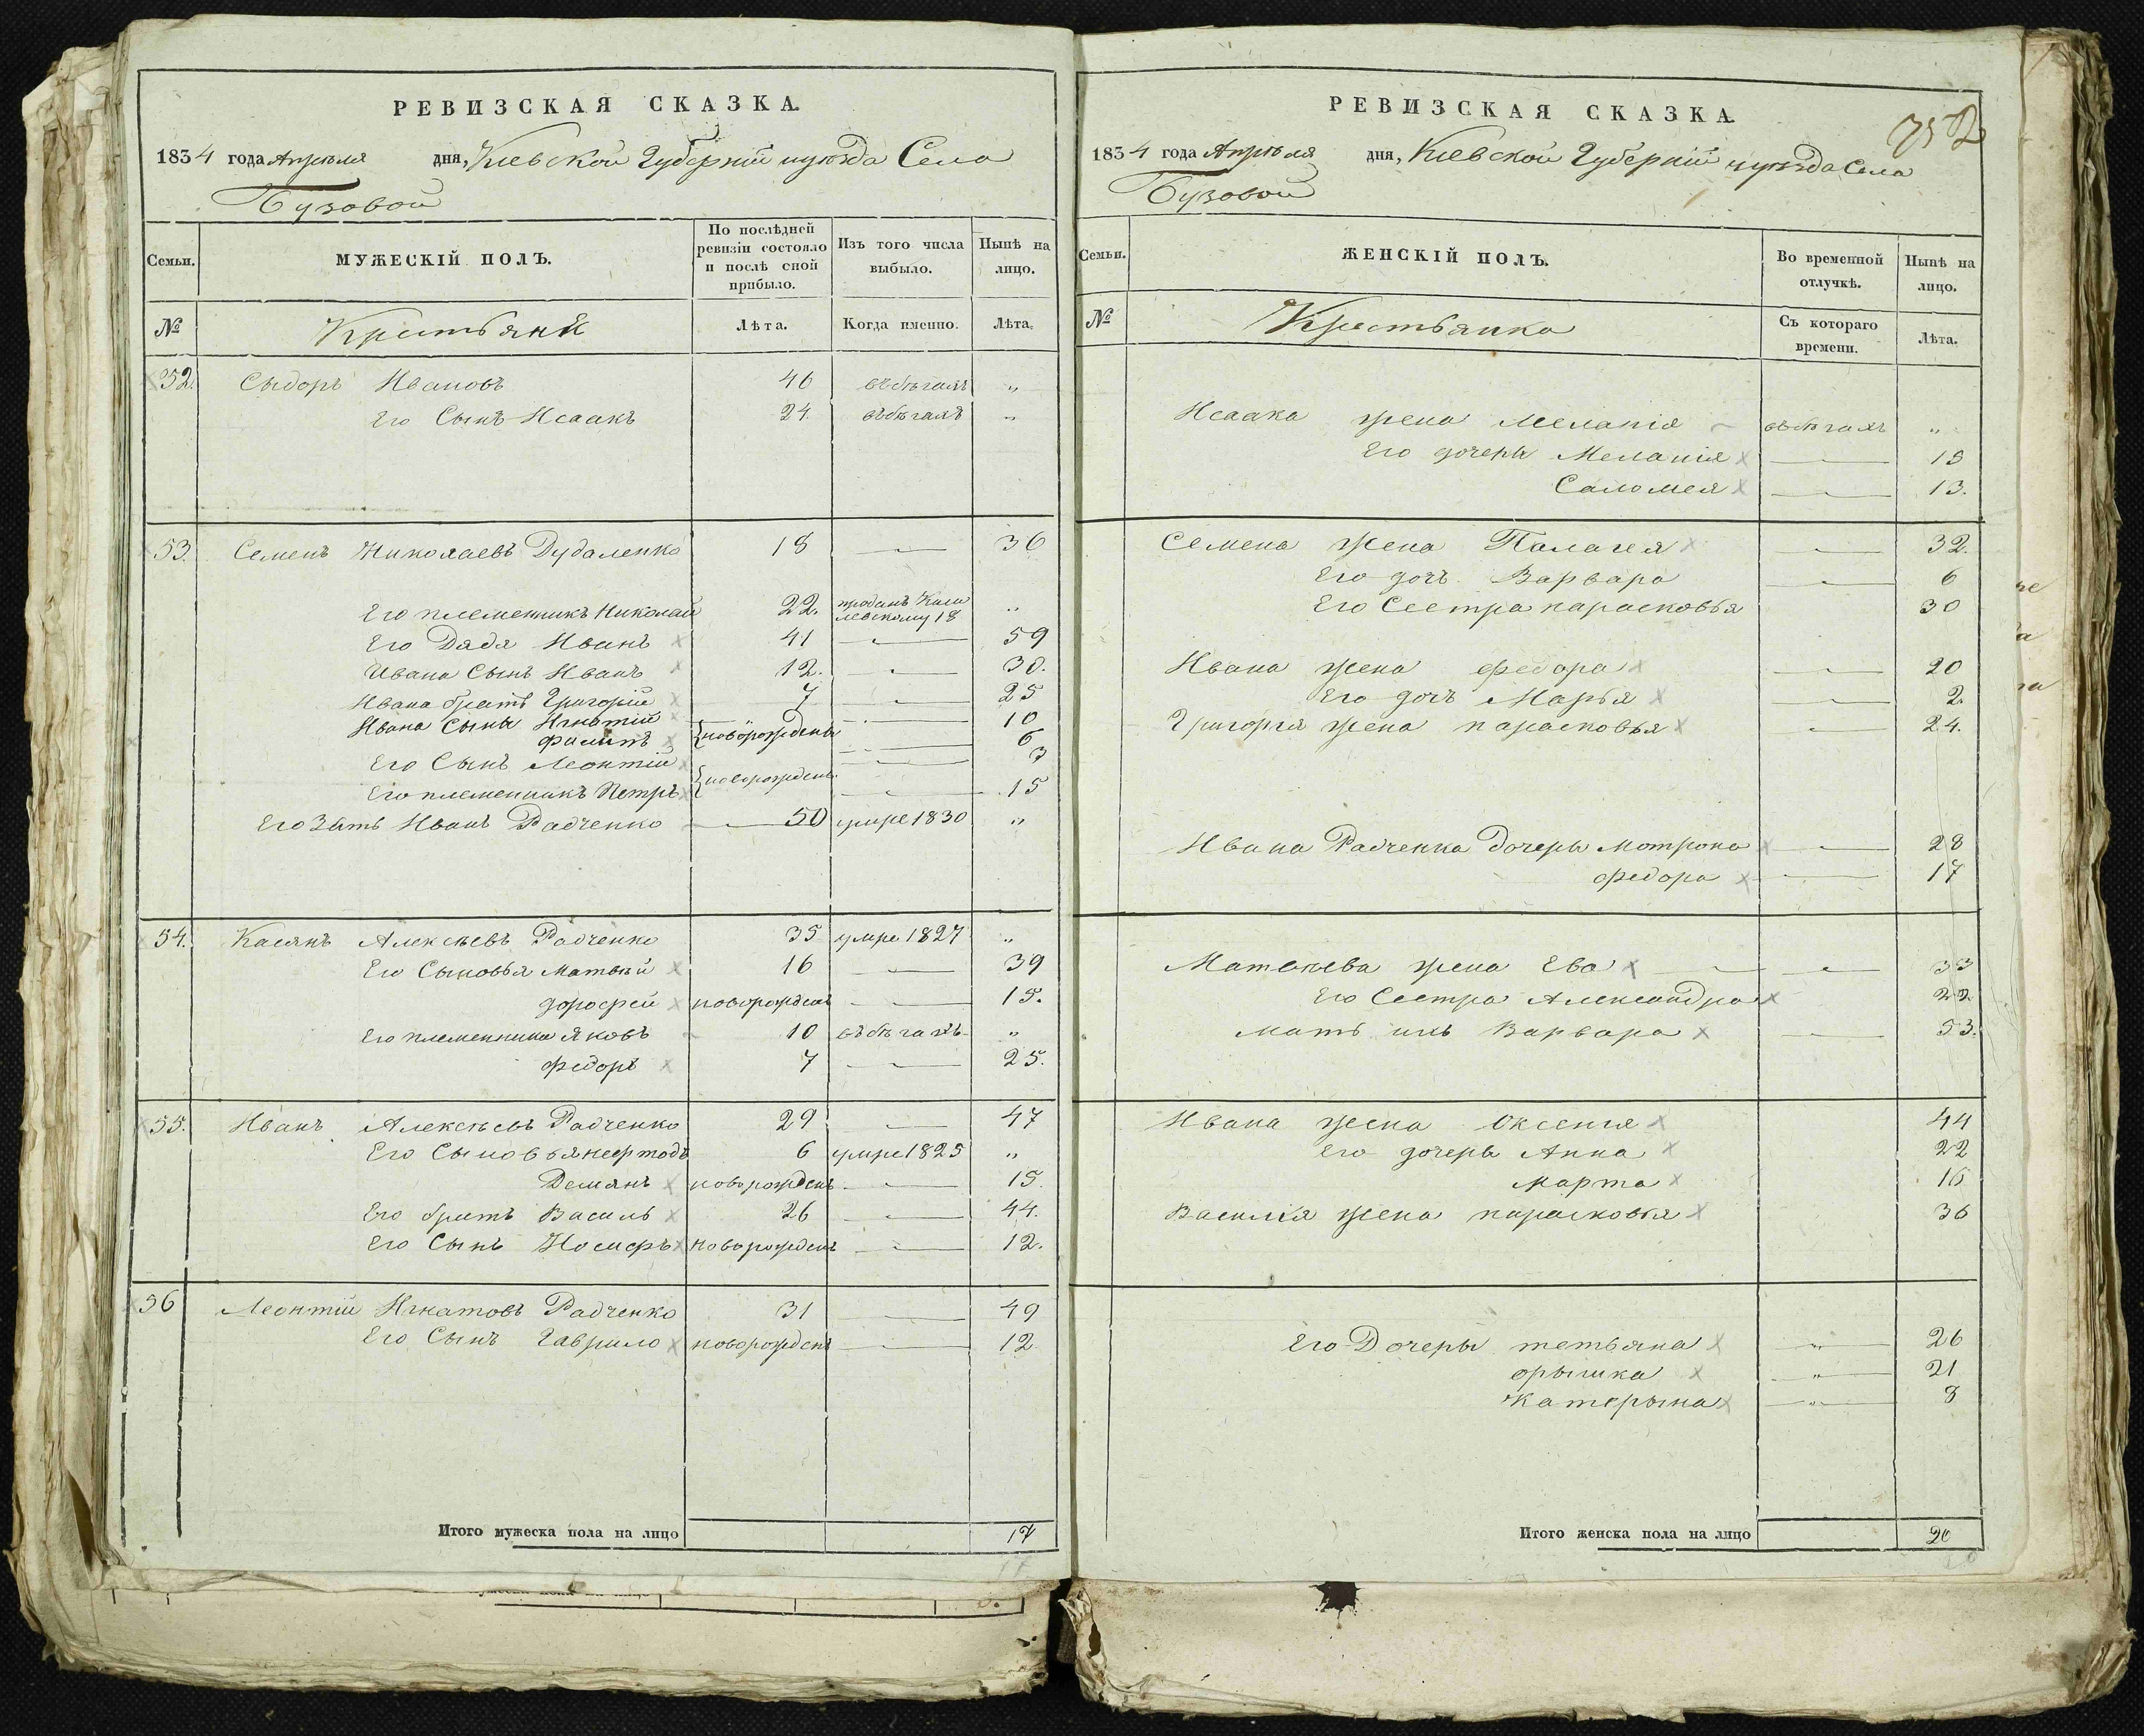 РЕВИЗСКАЯ СКАЗКА.
1834 года Апреля дня, Киевской Губерніи и уезда Села
Бузовой
Семьи. МУЖЕСКІЙ ПОЛЪ. По послѣдней ревизіи состояло и послѣ оной прибыло. Изъ того числа выбыло. Нынѣ на лицо.
№ Крестьяне Лѣта. Когда именно. Лѣта.
52. Сыдоръ Ивановъ 46 въ бѣгахъ „
Его Сынъ Исаакъ 24 въ бѣгахъ „
53. Семенъ Николаевъ Дудаленко 18 — 36
Его племенникъ Николай 22. проданъ 18 „
Его Дядя Иванъ 41 — 59
Ивана Сынъ Иванъ 12. — 30.
Ивана братъ Григорій 7 — 25
Ивана Сыны Игнатій новорождены — 10
Филипъ — 6
Его Сынъ Леонтій новорождены — 3
Его племенникъ Петръ — 15
Его Зять Иванъ Радченко 50 умре 1830 „
54. Касянъ Алексѣевъ Радченко 35 умре 1827 „
Его Сыновья Матвѣй 16 — 39
дорофей новорожденъ — 15.
Его племенники Яковъ 10 въ бѣгахъ „
Федоръ 7 — 25.
55. Иванъ Алексѣевъ Радченко 29 — 47
Его Сыновья нефтодъ 6 умре 1825 „
Демянъ новорожденъ — 15.
Его братъ Василь 26 — 44.
Его Сынъ Иосифъ новорожденъ — 12.
56 Леонтій Игнатовъ Радченко 31 — 49
Его Сынъ Гаврило новорожденъ — 12
Итого мужеска пола на лицо 17
РЕВИЗСКАЯ СКАЗКА.
752
1834 года Апреля дня, Киевской Губерніи и уезда Села
Бузовой
Семьи. ЖЕНСКІЙ ПОЛЪ. Во временной отлучкѣ. Нынѣ на лицо.
№ Крестьянка Съ котораго времени. Лѣта.
Исаака жена Меланія въ бѣгахъ „
Его дочеры Меланія — 15
Саломея — 13.
Семена жена Палагея — 32.
Его дочъ Варвара — 6
Его Сестра парасковья 30
Ивана жена федора — 20
Его дочъ Марья — 2.
Григорія жена парасковья — 24.
Ивана Радченка дочеры Мотрона — 28
федора — 17
Матвѣева жена Ева — 33
Его Сестра Александра 22.
Мать ихъ Варвара — 53.
Ивана жена Оксенія 44
Его дочеры Анна 22
Марта 16
Василія жена парасковья 36
Его Дочеры тетьяна — 26
орышка — 21
Катерына — 8
Итого женска пола на лицо 20